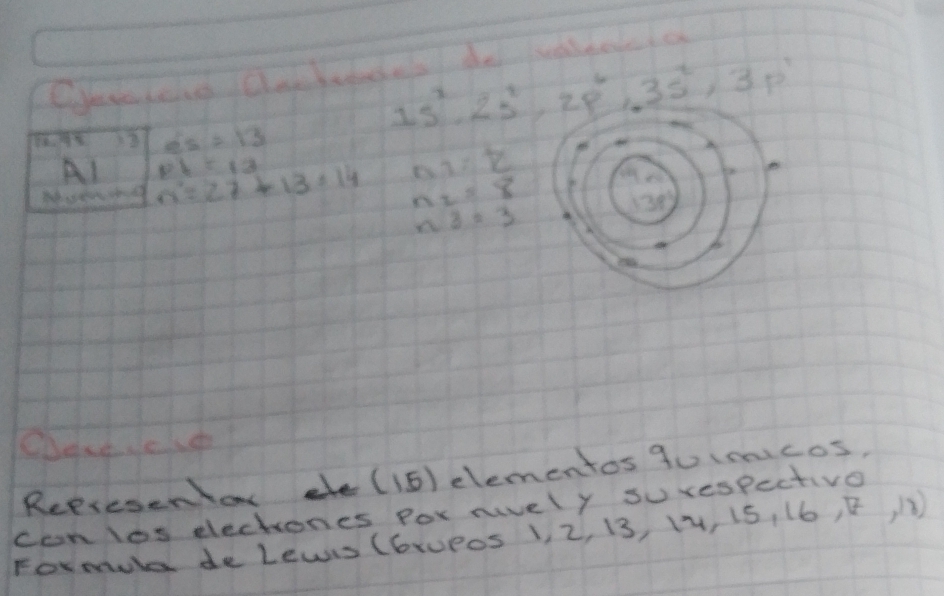 Ejercicio Electrones de valencia
1s² 2s², 2p⁶, 3s², 3p¹
13 es = 13
Al p+ = 13
n = 27 + 13 = 14
n1 = 2
n2 = 8
n3 = 3
13p
Ejercicio
Representar de (15) elementos quimicos.
con los electrones por nivel y su respectivo
Formula de Lewis (Grupos 1, 2, 13, 14, 15, 16, 17, 18)